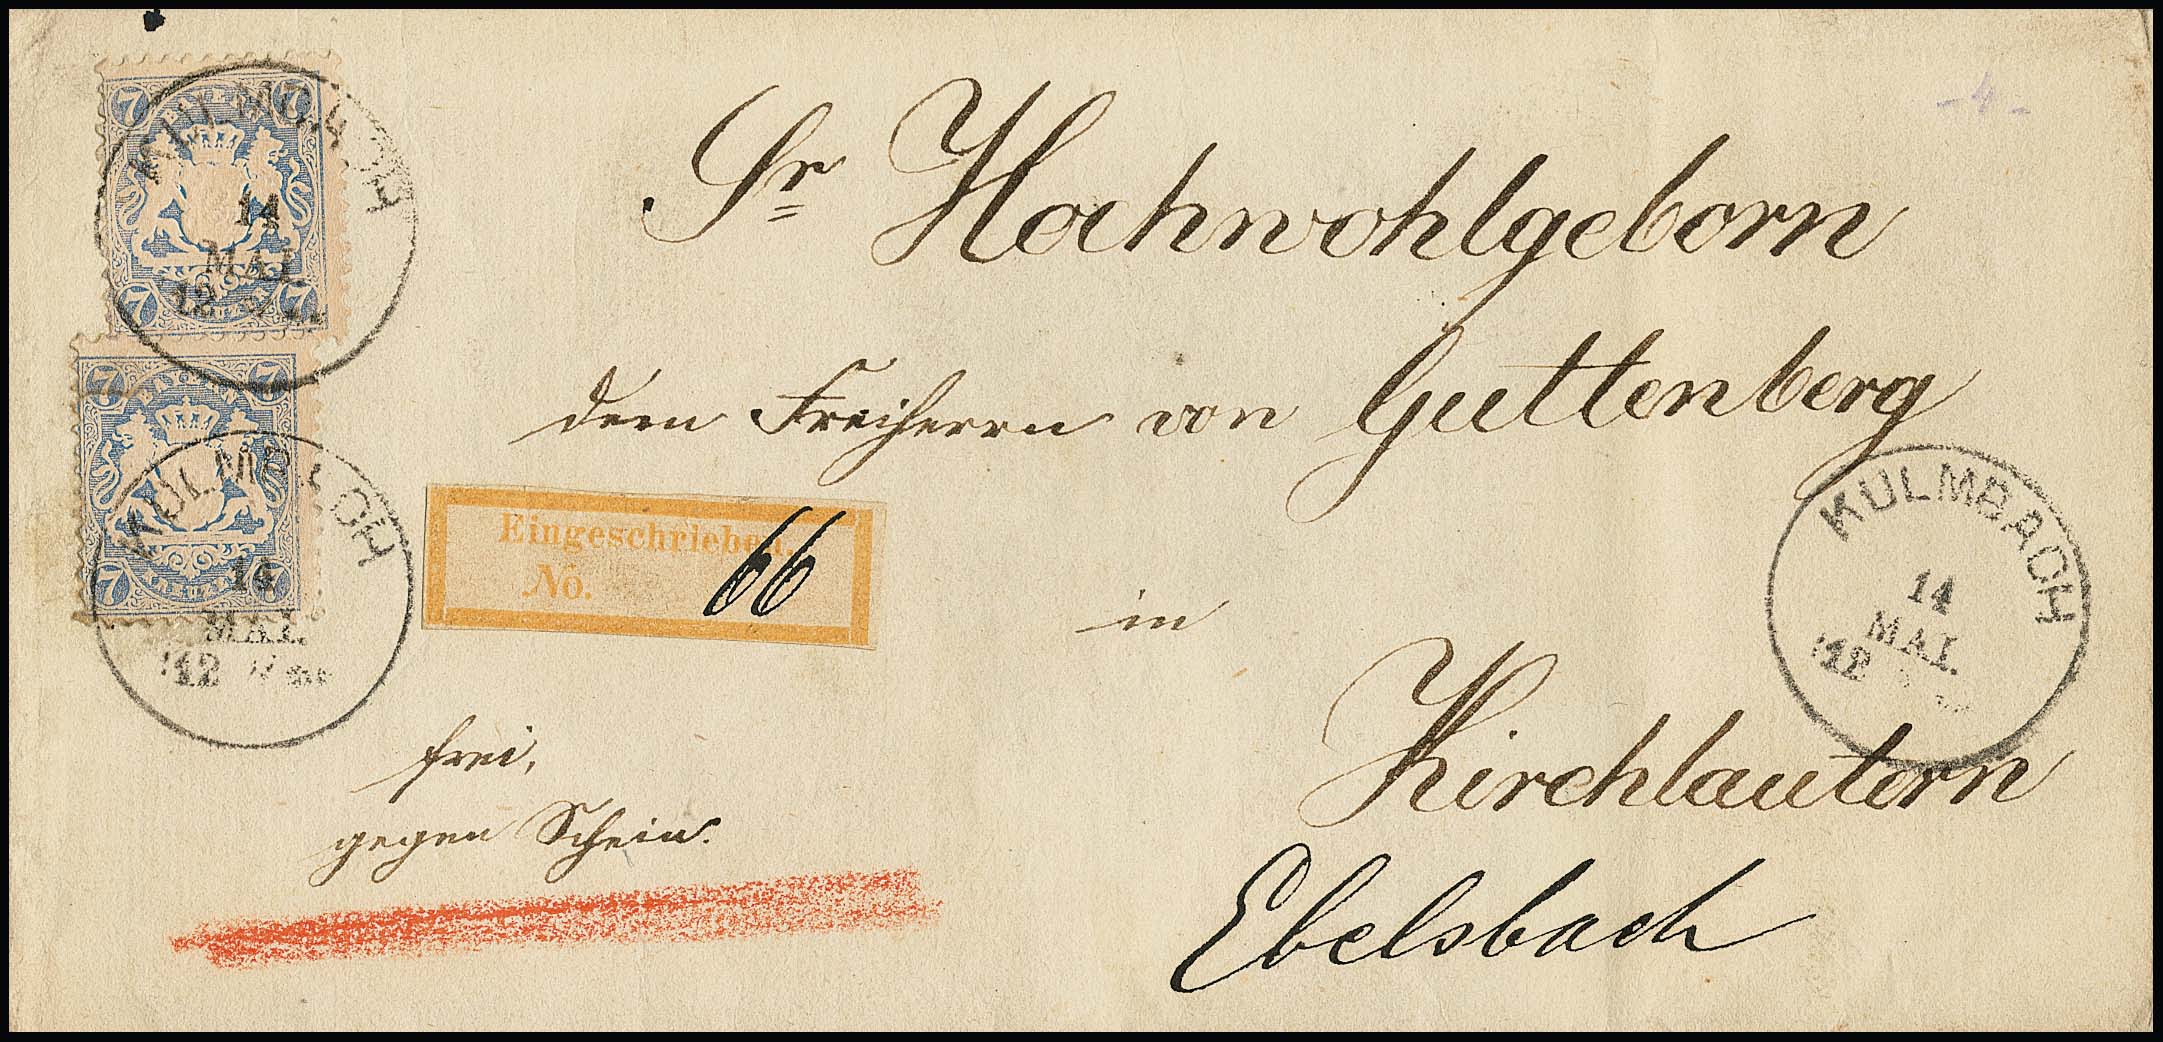 7 7
BAYERN
KULMBACH
14
MAI.
12
7 7
KREUZER
7 7
BAYERN
KULMBACH
14
MAI.
12
7
KREUZER
Sr Hochwohlgeborn
dem Freiherrn von Guttenberg
Eingeschrieben.
No. 66
in
Kirchlautern
Ebelsbach
KULMBACH
14
MAI.
12
frei,
gegen Schein.
- 4 -